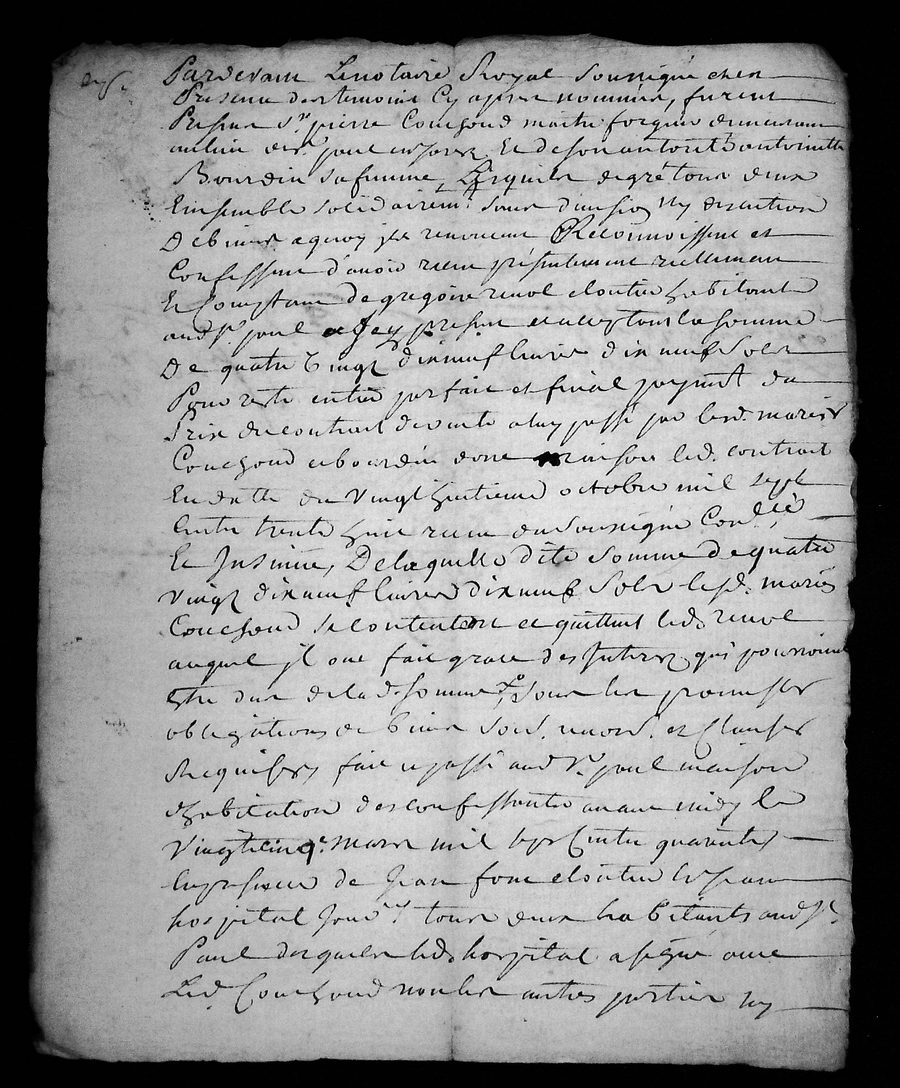 Pardevant Le notaire Royal soussigné et en
Presence des temoins Cy apres nommés, furent
Presens Sr. pierre Couchoud maitre forgeur demeurant
au lieu de St. paul en Jarez Et de son autorité antoinette
Bourdin sa femme, Lesquels de gré tous deux
Ensemble solidairemt. sans division ny discution
De biens a quoy ils renoncent Reconnoissent et
Confessent d'avoir receu présentement reellement
Et Comptant de gregoire revol cloutier habitant
aud St. paul present et acceptant la somme
De quatre vingt dix neuf livres dix neuf sols
Pour reste entier parfait et final payemt. du
Prix du contrat de vente a luy passé par lesd. mariés
Couchoud et bourdin d'une maison led. contrat
En datte du vingt huitieme octobre mil sept
Cents trente huit receu du soussigné Conollé
Et Insinué, De laquelle dite somme de quatre
vingt dix neuf livres dix neuf sols lesd. mariés
Couchoud se contentent et quittent led. revol
auquel il ont fait grace des Interets qui pourroient
Etre dus de lad. somme, sous les promesses
obligations de biens soud. renond. et Clauses
Requises, fait et passé aud St. paul maison
d'habitation des confessants avant midy le
vingt cinqe. mars mil sept Cents quarante,
En presence de Jean font cloutier et Jean
hospital tous deux habitants aud St.
Paul desquels led. hospital a signé avec
Led. Couchoud non les autres parties ny